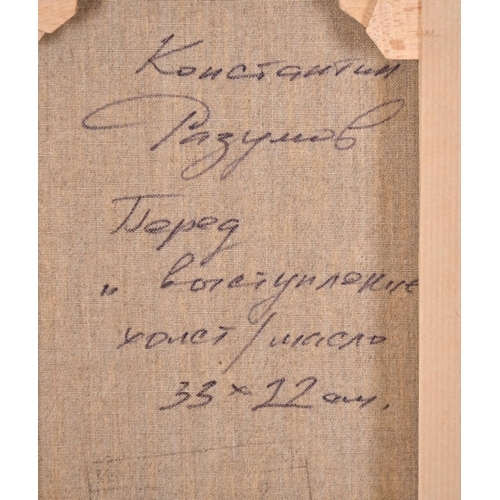 Константин
Разумов
Перед
" выступление
холст/масло
33 × 22 см.